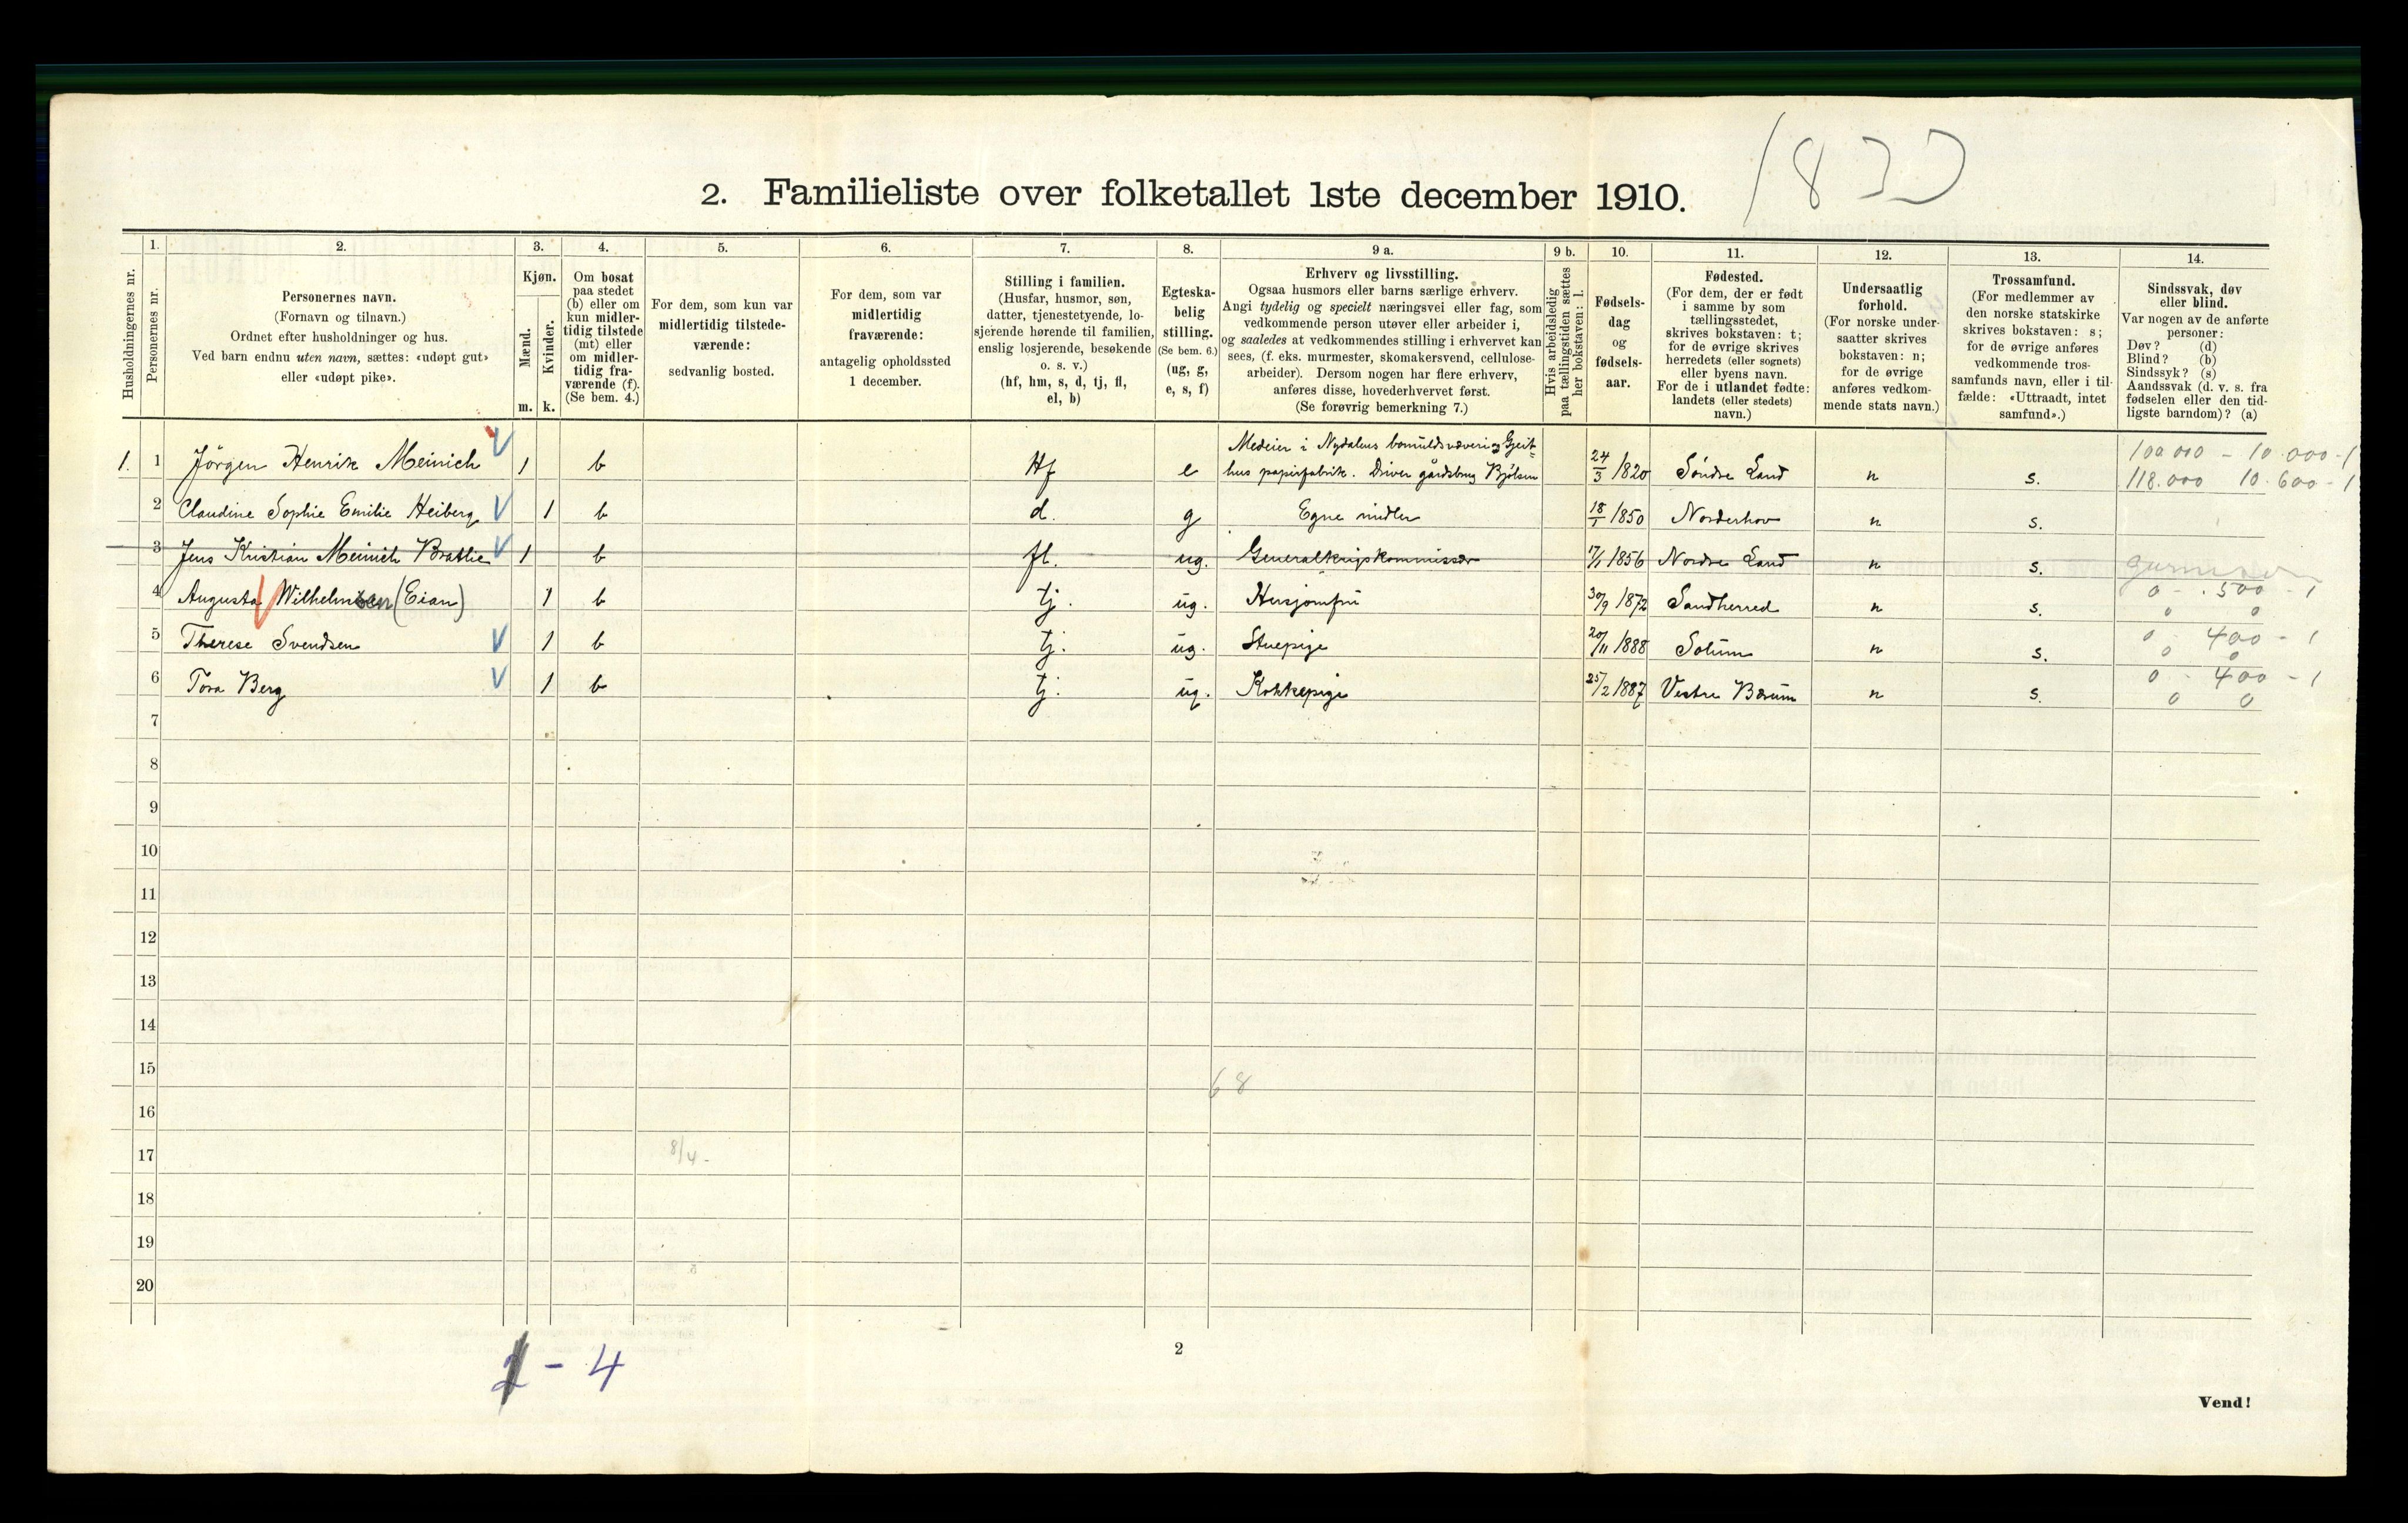 1833
2. Familieliste over folketallet 1ste december 1910.
Husholdningernes nr.
1.
Personernes nr.
2.
Personernes navn.
(Fornavn og tilnavn.)
Ordnet efter husholdninger og hus.
Ved barn endnu uten navn, sættes: «udøpt gut»
eller «udøpt pike».
3.
Kjøn.
Mænd.
Kvinder.
m. k.
4.
Om bosat
paa stedet
(b) eller om
kun midler-
tidig tilstede
(mt) eller
om midler-
tidig fra-
værende (f).
(Se bem. 4.)
5.
For dem, som kun var
midlertidig tilstede-
værende:
sedvanlig bosted.
6.
For dem, som var
midlertidig
fraværende:
antagelig opholdssted
1 december.
7.
Stilling i familien.
(Husfar, husmor, søn,
datter, tjenestetyende, lo-
sjerende hørende til familien,
enslig losjerende, besøkende
o. s. v.)
(hf, hm, s, d, tj, fl,
el, b)
8.
Egteska-
belig
stilling.
(Se bem. 6.)
(ug, g,
e, s, f)
9 a.
Erhverv og livsstilling.
Ogsaa husmors eller barns særlige erhverv.
Angi tydelig og specielt næringsvei eller fag, som
vedkommende person utøver eller arbeider i,
og saaledes at vedkommendes stilling i erhvervet kan
sees, (f. eks. murmester, skomakersvend, cellulose-
arbeider). Dersom nogen har flere erhverv,
anføres disse, hovederhvervet først.
(Se forøvrig bemerkning 7.)
9 b.
Hvis arbeidsledig
paa tællingstiden sættes
her bokstaven: l.
10.
Fødsels-
dag
og
fødsels-
aar.
11.
Fødested.
(For dem, der er født
i samme by som
tællingsstedet,
skrives bokstaven: t;
for de øvrige skrives
herredets (eller sognets)
eller byens navn.
For de i utlandet fødte:
landets (eller stedets)
navn.)
12.
Undersaatlig
forhold.
(For norske under-
saatter skrives
bokstaven: n;
for de øvrige
anføres vedkom-
mende stats navn.)
13.
Trossamfund.
(For medlemmer av
den norske statskirke
skrives bokstaven: s;
for de øvrige anføres
vedkommende tros-
samfunds navn, eller i til-
fælde: «Uttraadt, intet
samfund».)
14.
Sindssvak, døv
eller blind.
Var nogen av de anførte
personer:
Døv? (d)
Blind? (b)
Sindssyk? (s)
Aandssvak (d. v. s. fra
fødselen eller den tid-
ligste barndom)? (a)
Medeier i Nydalens bomuldsvæveri og Gjeit- 100.000 - 10.000 - 1
1. 1 Jörgen Henrik Meinich 1 b Hf e hus papirfabrik. Driver gårdsbrug Bjölsen 24/3 1820 Söndre Land n s. 118.000 10.600 - 1
2 Claudine Sophie Emilie Heiberg 1 b d. g Egne midler 18/1 1850 Norderhov n s.
3 Jens Kristian Meinich Bratlie 1 b fl. ug. Generalkrigskommissær 17/1 1856 Nordre Land n s.
4 Augusta Wilhelmsen (Eian) 1 b tj. ug. Husjomfru 30/9 1872 Sandherred n s. 0 - 500 - 1
0 0
5 Therese Svendsen 1 b tj. ug. Stuepige 20/11 1888 Solum n s. 0 - 400 - 1
0 0
6 Tora Berg 1 b tj. ug. Kokkepige 25/2 1887 Vestre Bærum n s. 0 - 400 - 1
0 0
7
8
9
10
11
12
13
14
15
68
16
17 8/4 -
18
19
20
- 4
2
Vend!